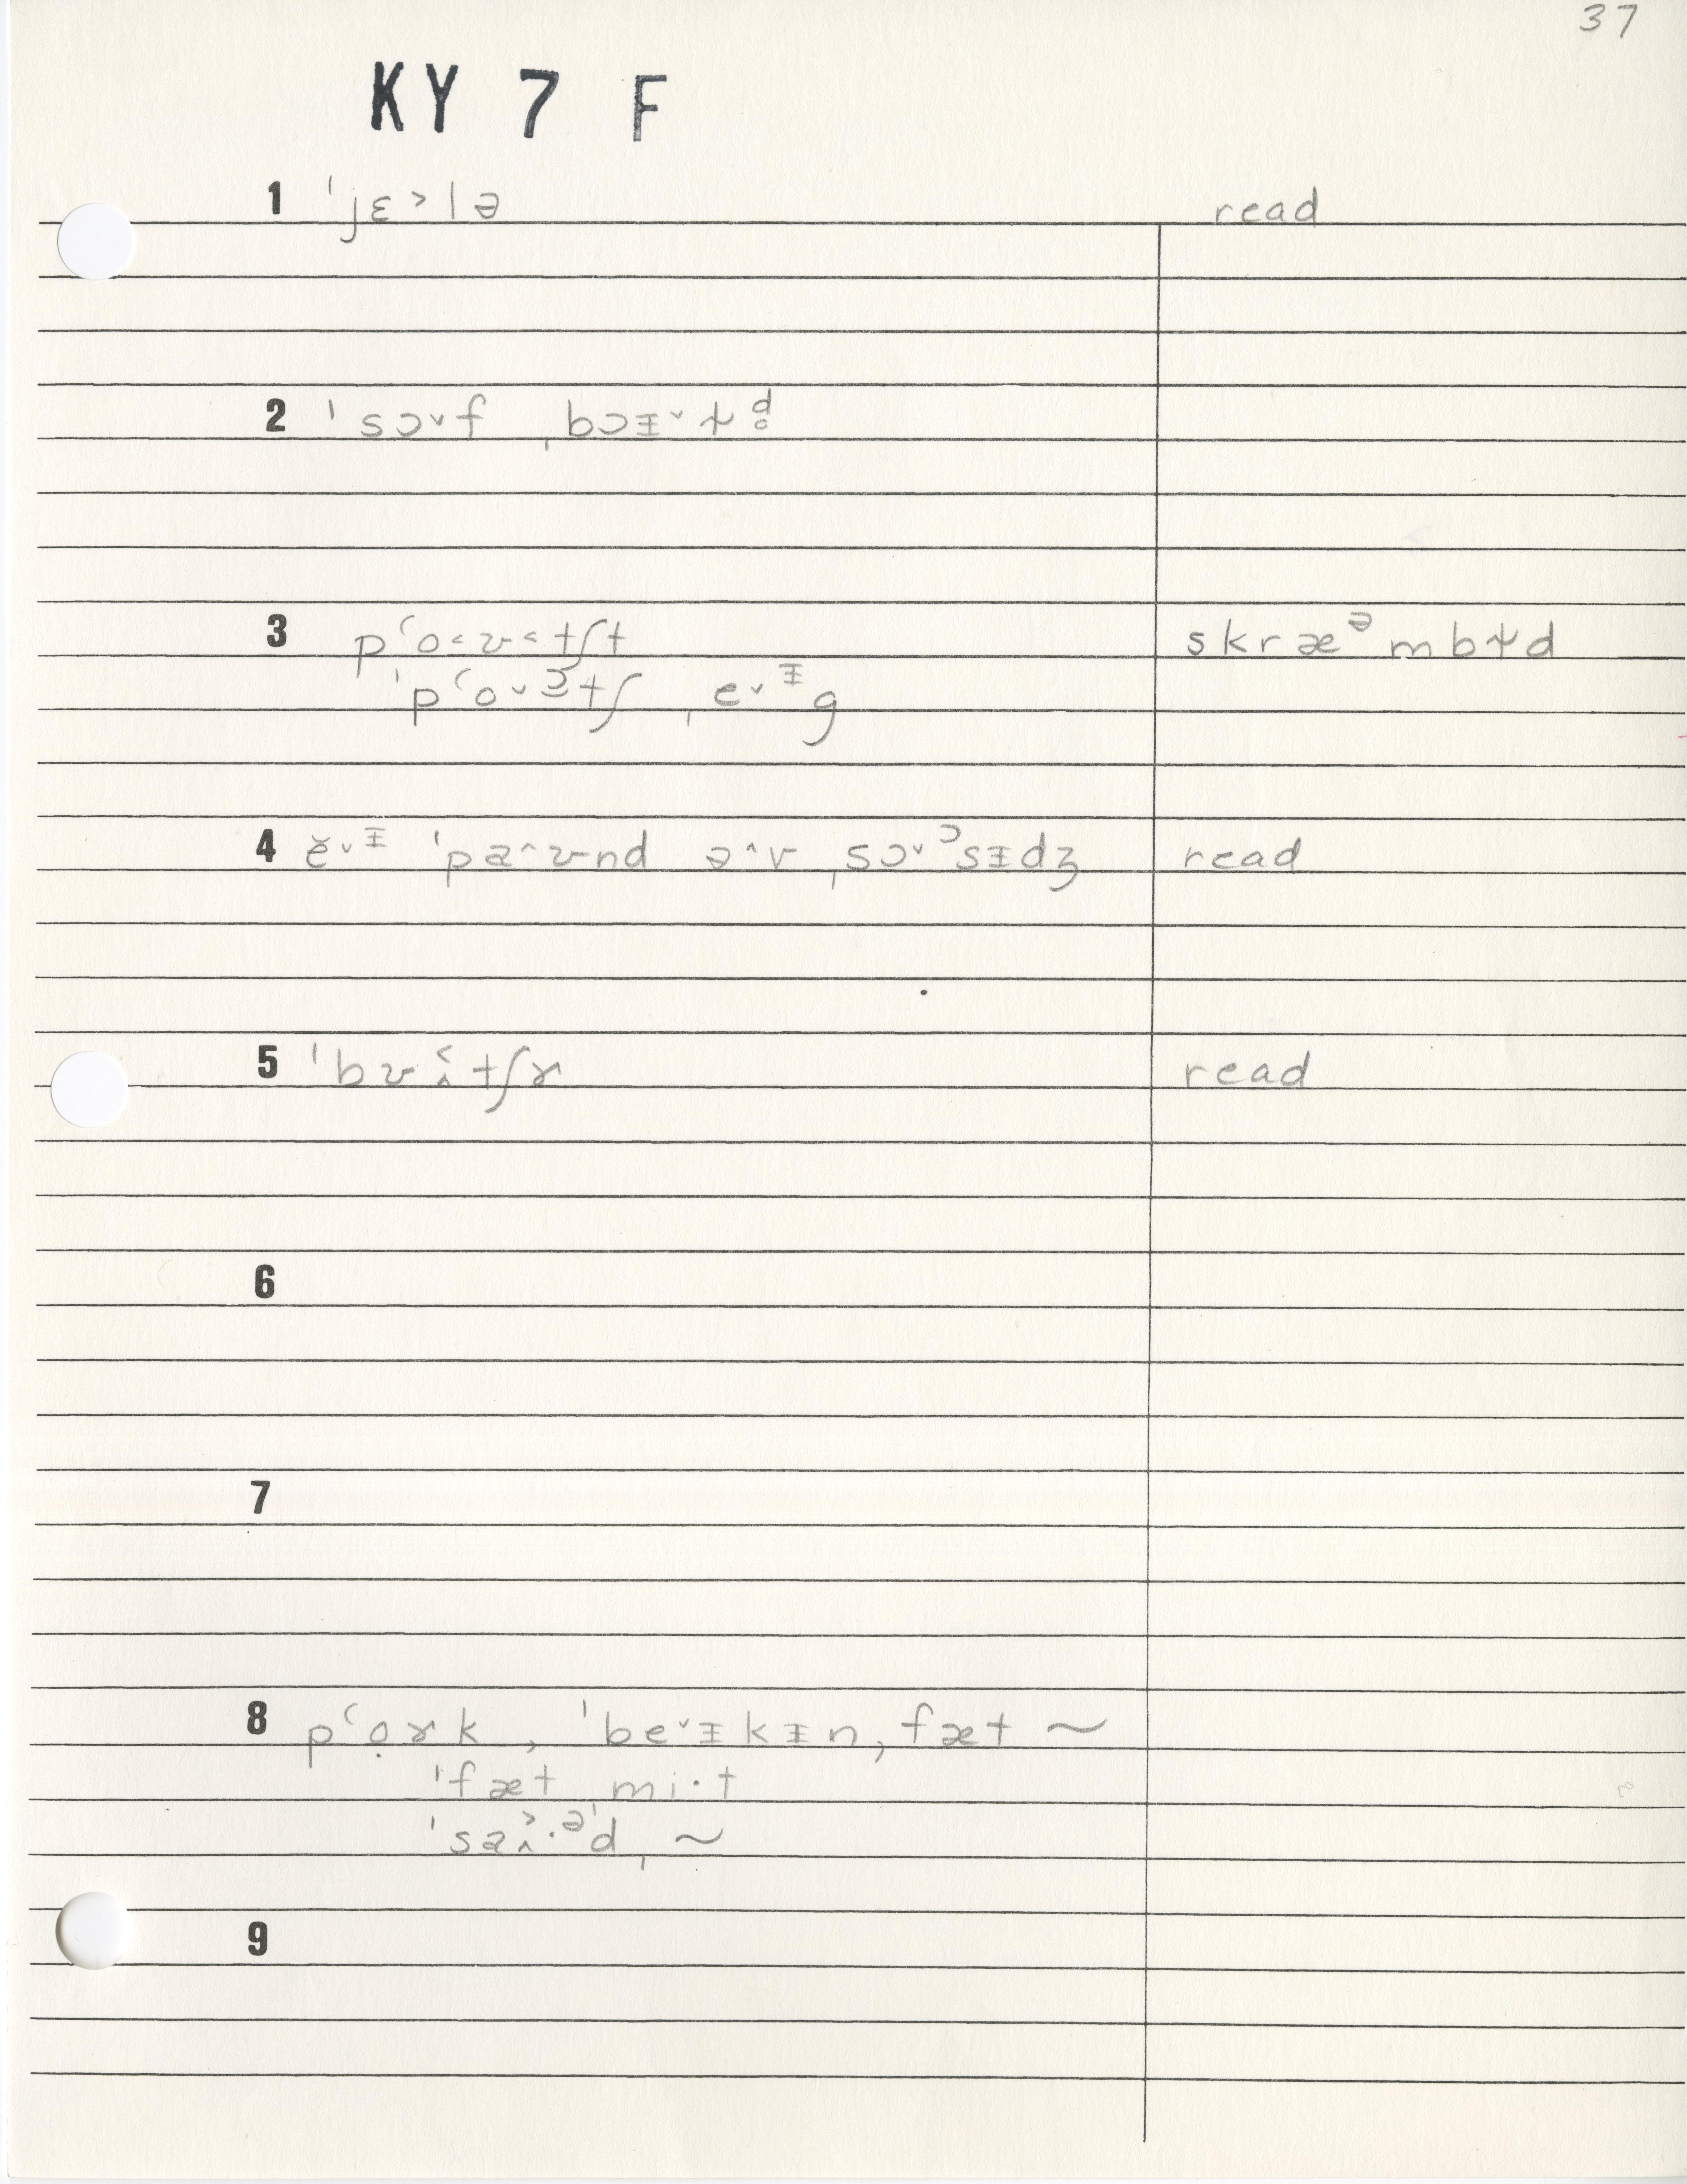 37
KY 7 F
1 ˈjɛ˃lə read
2 ˈsɔ˅f ˌbɔᵻ˅ɫd̥
3 pʻo˂ʊ˂tʃt skræᵊmbɫd
ˈpʻo˅ tʃ ˌe˅ᵻg
4 ĕ˅ᵻ ˈpa˄ʊnd ə˄v ˌsɔ˅ᵓsᵻdʒ read
5 ˈbʊ˂˄tʃɚ read
6
7
8 pʻo̩ɚk, ˈbe˅ᵻkᵻn, fæt ~
ˈfæt mi·t
ˈsa˃˄·ᵊˈd ˌ~
9